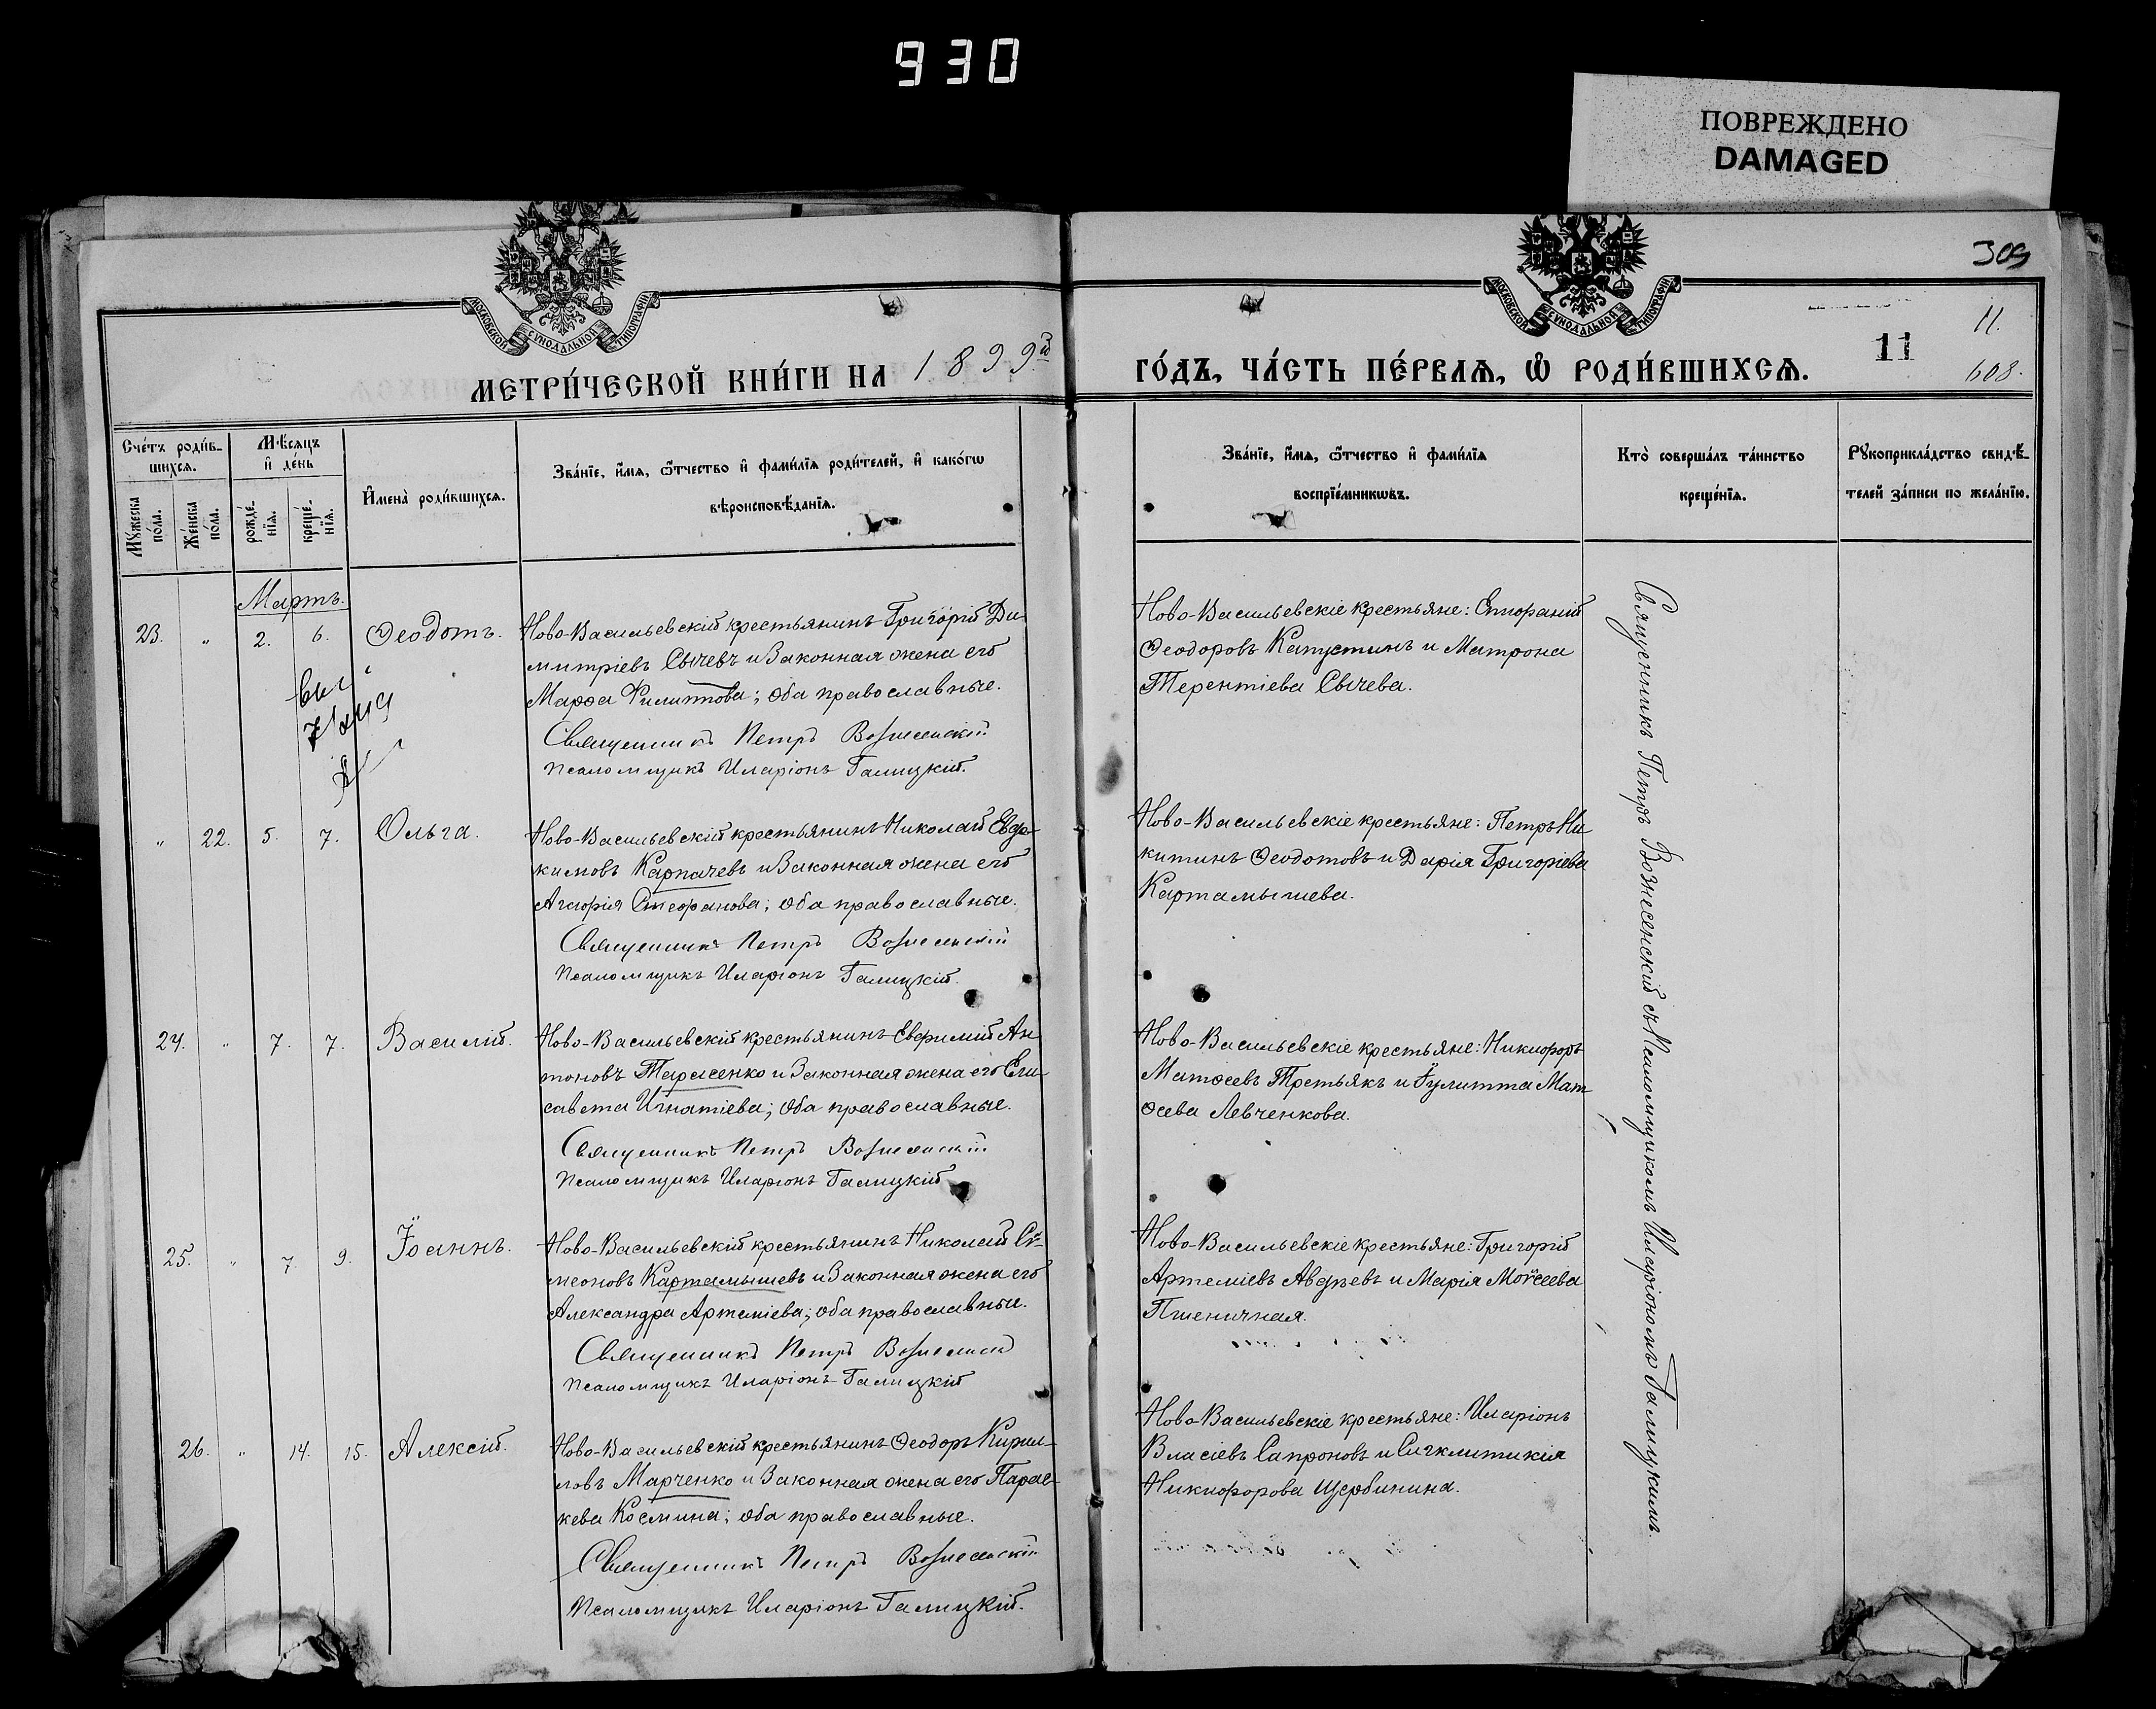 930
ПОВРЕЖДЕНО
DAMAGED
309
МОСКОВСКОЙ СѴНОДАЛЬНОЙ ТИПОГРАФІИ
МОСКОВСКОЙ СѴНОДАЛЬНОЙ ТИПОГРАФІИ
11
11.
608.
МЕТРИ́ЧЕСКОЙ КНИ́ГИ НА 1899й
ГО́ДЪ, ЧА́СТЬ ПЕ́РВАѦ, Ѡ҆ РОДИ́ВШИХСѦ.
Сче́тъ роди́в-
шихсѧ.
Мꙋ́жеска по́ла.
Же́нска по́ла.
Мѣ́сѧцъ
и҆ де́нь
рожде́-
нїѧ.
креще́-
нїѧ.
И҆мена̀ роди́вшихсѧ.
Зва́нїе, и҆́мѧ, ѻ҆́тчество и҆ фами́лїѧ роди́телей, и҆ како́гѡ
вѣроисповѣ́данїѧ.
Зва́нїе, и҆́мѧ, ѻ҆́тчество и҆ фами́лїѧ
воспрїе́мникѡвъ.
Кто̀ соверша́лъ та́инство
креще́нїѧ.
Рꙋкоприкла́дство свидѣ́-
телей за́писи по жела́нїю.
Мартъ.
23. „ 2. 6. Ѳеодотъ.
Ново-Васильевскій крестьянинъ Григорій Ди-
митріевъ Сычевъ и Законная жена его
Марѳа Филиппова; оба православные.
Священникъ Петръ Вознесенскій
Псаломщикъ Иларіонъ Галицкій.
Ново-Васильевскіе крестьяне:
Ѳеодоровъ Капустинъ и Матрона
Терентіева Сычева.
„ 22. 5. 7. Ольга.
Ново-Васильевскій крестьянинъ Николай Евдо-
кимовъ Карпачевъ и Законная жена его
Стефанова; оба православные.
Священникъ Петръ Вознесенскій
Псаломщикъ Иларіонъ Галицкій.
Ново-Васильевскіе крестьяне: Петръ Ни-
китинъ Ѳеодотовъ и Дарія Григоріева
Картамышева.
24. „ 7. 7. Василій.
Ново-Васильевскій крестьянинъ Евфимій Ан-
тоновъ Тарасенко и Законная жена его Ели-
савета Игнатіева; оба православные.
Священникъ Петръ Вознесенскій
Псаломщикъ Иларіонъ Галицкій
Ново-Васильевскіе крестьяне: Никифоръ
Матѳеевъ Третьякъ и Іулитта Мат-
ѳеева Левченкова.
25. „ 7. 9. Іоаннъ.
Ново-Васильевскій крестьянинъ Николай Си-
меоновъ Картамышевъ и Законная жена его
Александра Артеміева; оба православные.
Священникъ Петръ Вознесенскій
Псаломщикъ Иларіонъ Галицкій
Ново-Васильевскіе крестьяне: Григорій
Артеміевъ Авдѣевъ и Марія Моѵсеева
Пшеничная.
26. „ 14. 15. Алексій.
Ново-Васильевскій крестьянинъ Ѳеодоръ Кирил-
ловъ Марченко и Законная жена его Парас-
кева Космина; оба православные.
Священникъ Петръ Вознесенскій
Псаломщикъ Иларіонъ Галицкій.
Ново-Васильевскіе крестьяне: Иларіонъ
Власіевъ Сапроновъ и Сигклитикія
Никифорова Щербинина.
Священникъ Петръ Вознесенскій съ Псаломщикомъ Иларіономъ Галицкимъ.